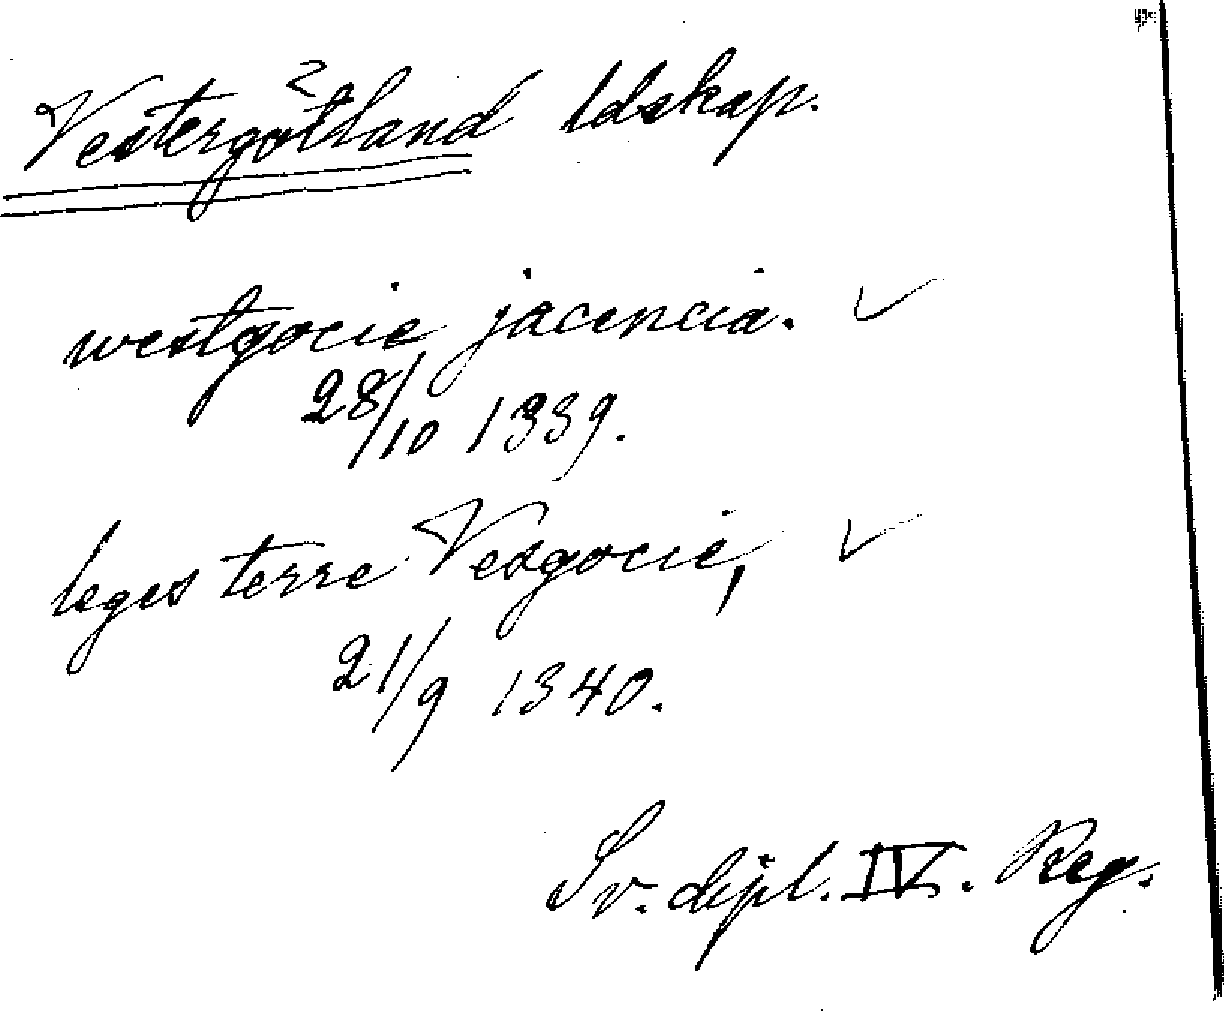 Vestergötland ldskap.
westgocie jacencia. ✓
28/10 1339.
leges terre Vesgocie, ✓
21/9 1340.
Sv. dipl. IV. Reg.